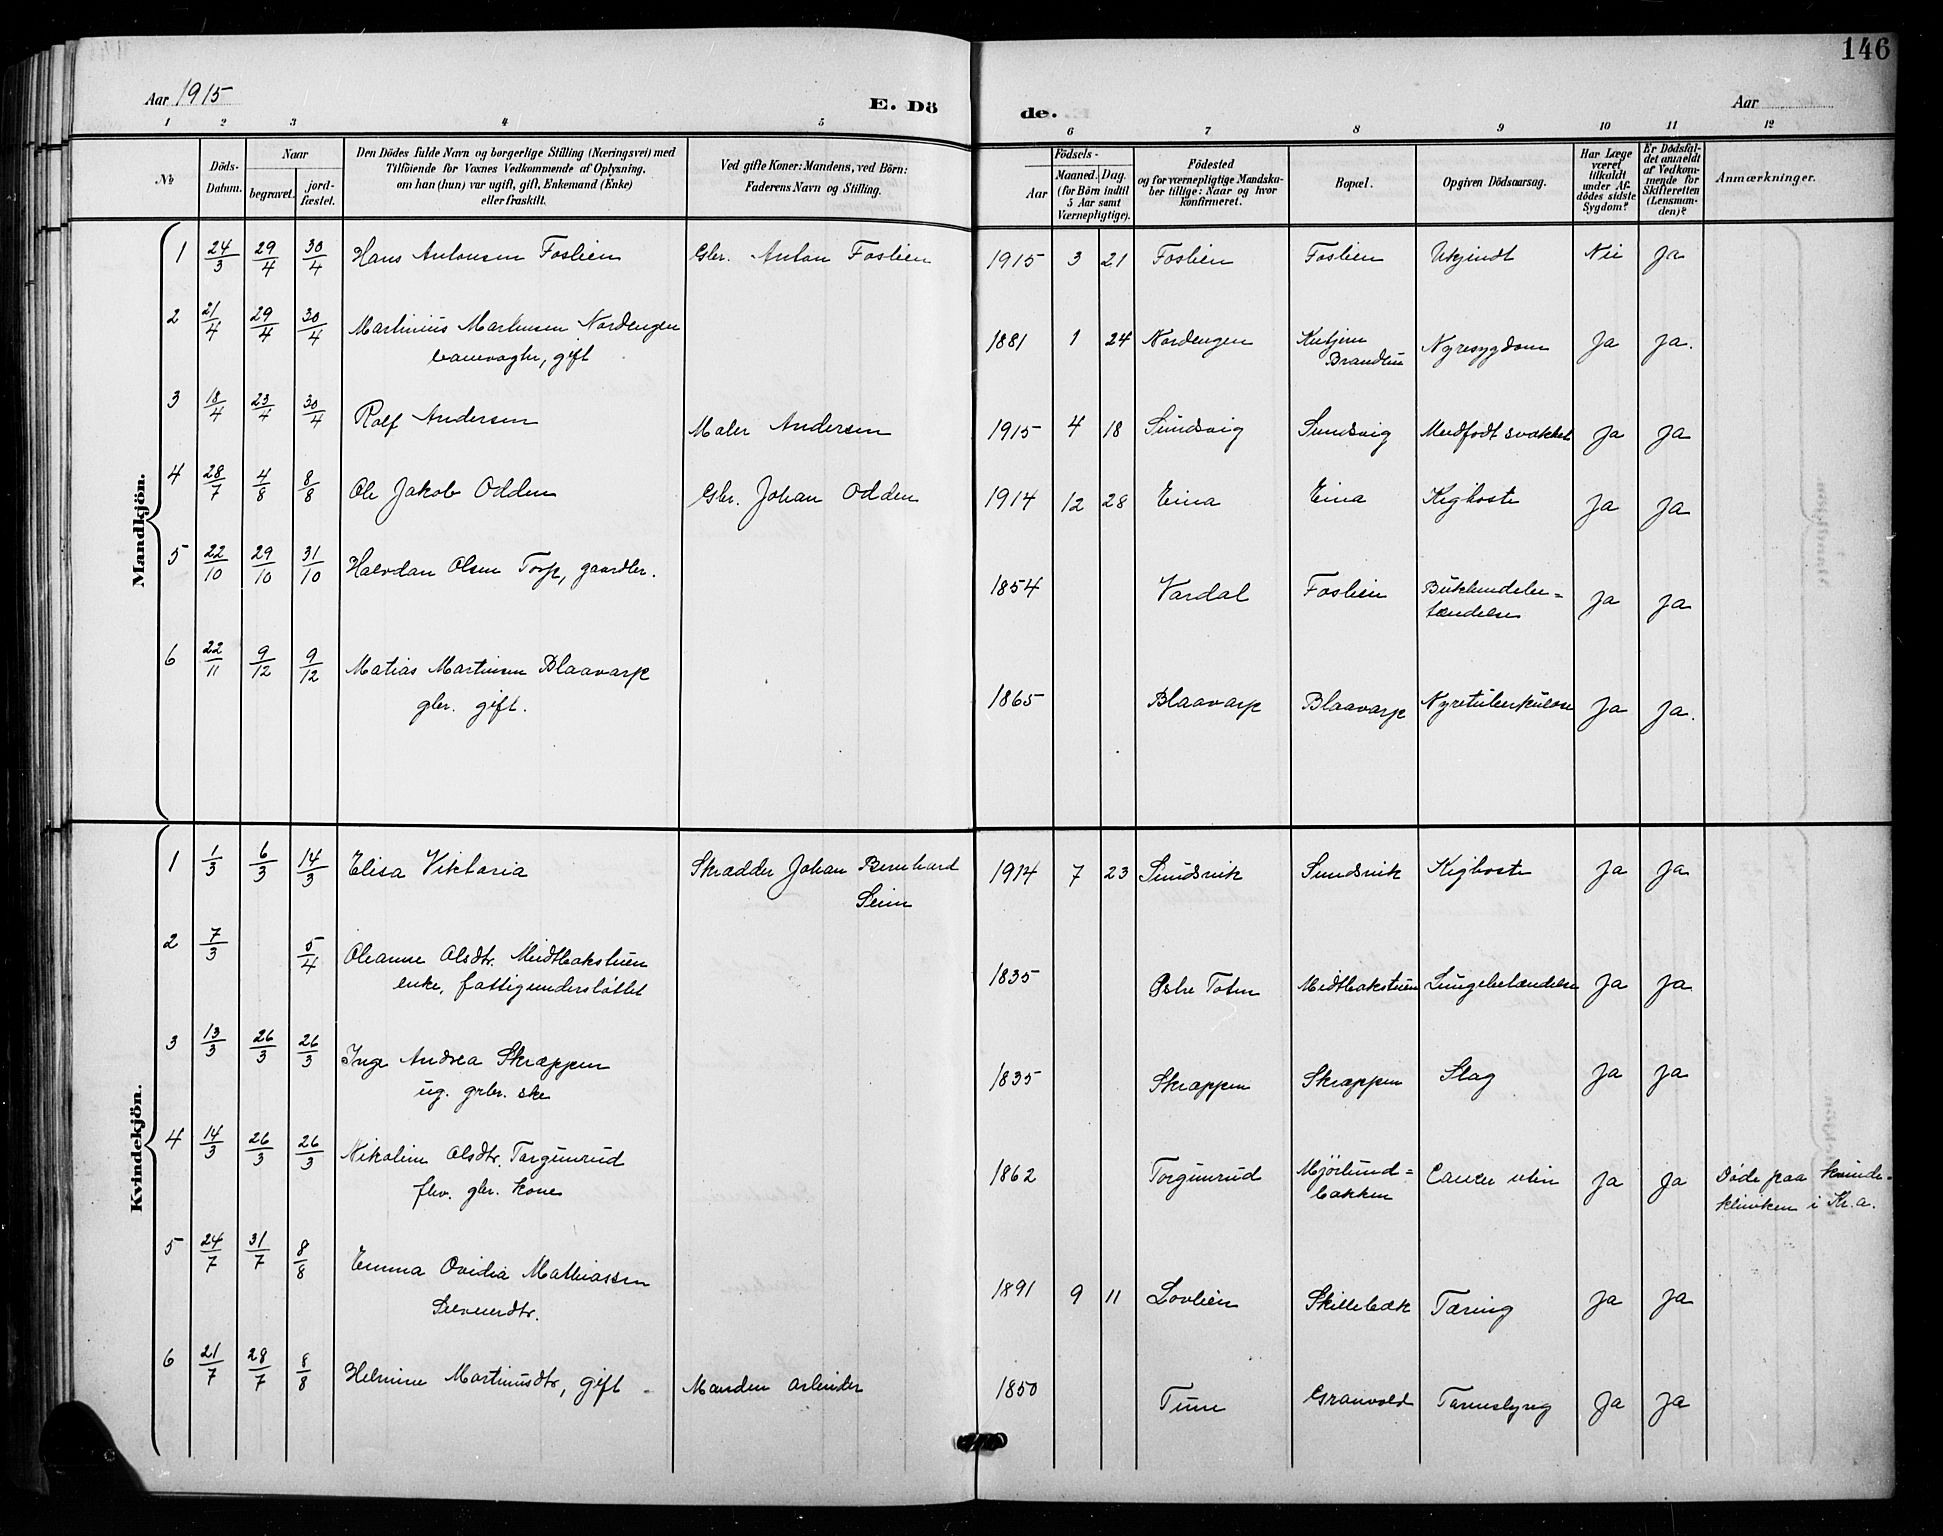 146
Aar 1915
E. Dö
de.
Aar
1 2 3 4 5 6 7 8 9 10 11 12
№
Döds-Datum.
Naar
begravet.
jord-fæstet.
Den Dödes fulde Navn og borgerlige Stilling (Næringsvei) med
Tilföiende for Voxnes Vedkommende af Oplysning,
om han (hun) var ugift, gift, Enkemand (Enke)
eller fraskilt.
Ved gifte Koner: Mandens, ved Börn:
Faderens Navn og Stilling.
Födsels-
Aar
Maaned. Dag.
(for Börn indtil
5 Aar samt
Værnepligtige).
Födested
og for værnepligtige Mandska-
ber tillige: Naar og hvor
konfirmeret.
Bopæl.
Opgiven Dödsaarsag.
Har Læge
været
tilkaldt
under Af-
dödes sidste
Sygdom?
Er Dödsfal-
det anmeldt
af Vedkom-
mende for
Skifteretten
(Lensman-
den)?
Anmærkninger.
Mandkjön.
1 24/3 29/4 30/4 Hans Antonsen Foslien Gbr. Anton Foslien 1915 3 21 Foslien Foslien Ukjendt Nei Ja
2 21/4 29/4 30/4 Martinius Martinsen Nordengen 1881 1 24 Nordengen Nyresygdom Ja Ja.
banevogter, gift
3 18/4 23/4 30/4 Rolf Andersen Maler Andersen 1915 4 18 Sundvig Sundsvig Medfødt svakhet Ja Ja
4 28/7 4/8 8/8 Ole Jakob Odden Gbr. Johan Odden 1914 12 28 Eina Eina Kighoste Ja Ja
5 22/10 29/10 31/10 Halvdan Olsen Torp, gaardbr. 1854 Vardal Foslien Bukhindebe-
tændelse Ja Ja
6 22/11 9/12 9/12 Matias Martinsen Blaavarp 1865 Blaavarp Blaavarp Nyretuberkulose Ja Ja.
gbr. gift.
Kvindekjön.
1 1/3 6/3 14/3 Elisa Viktoria Skrædder Johan Bernhard 1914 7 23 Sundsvik Sundsvik Kighoste Ja Ja
2 7/3 5/4 Oleanne Olsdtr. Midtbakstuen 1835 Østre Toten Midtbakstuen Lungebetændelse Ja Ja
enke, fattigunderstøttet
3 13/3 26/3 26/3 Inge Andrea Skræppen 1835 Skræppen Skræppen Slag Ja Ja
ug. grbr. ske
4 14/3 26/3 26/3 Nikoline Olsdtr. Torgunrud 1862 Torgunrud Mjørlund-
bakken Cancer uteri Ja Ja Døde paa kvinde-
klinikken i Kr.a.
fhv. gbr. kone
5 24/7 31/7 8/8 Emma Ovidia Mathiassen 1891 9 11 Lovlien Skillebæk Tæring Ja Ja
6 21/7 28/7 8/8 Helmine Martinusdtr, gift - Manden arbeider 1850 Tune Granvold Ja Ja